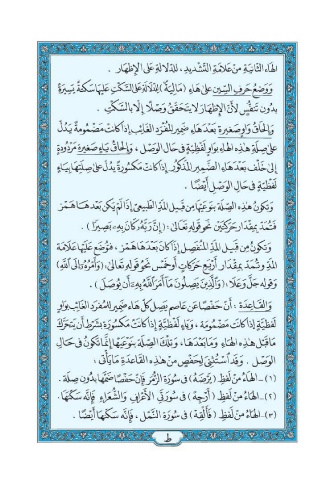 الهاء الثانية من علامة التشديد، للدلالة على الإظهار .
ووضع حرف السين على هاء ﴿ ماليه ﴾ للدلالة على السكت عليها سكتة يسيرة
بدون تنفس لأن الإظهار لا يتحقق وصلا إلا بالسكت .
وإلحاق واو صغيرة بعد هاء ضمير المفرد الغائب إذا كانت مضمومة يدل
على صلة هذه الهاء بواو لفظية في حال الوصل ، وإلحاق ياء صغيرة مردودة
إلى خلف بعد هاء الضمير المذكور إذا كانت مكسورة يدل على صلتها بياء
لفظية في حال الوصل أيضا .
وتكون هذه الصلة بنوعيها من قبيل المد الطبيعي إذا لم يكن بعدها همز
فتمد بمقدار حركتين نحو قوله تعالى : ﴿ إن ربه كان به بصيرا ﴾ .
وتكون من قبيل المد المنفصل إذا كان بعدها همز ، فتوضع عليها علامة
المد وتمد بمقدار أربع حركات أو خمس نحو قوله تعالى: ﴿ وأمره إلى الله ﴾
وقوله جل وعلا : ﴿ والذين يصلون ما أمر الله به أن يوصل ﴾ .
والقاعدة : أن حفصا عن عاصم يصل كل هاء ضمير للمفرد الغائب بواو
لفظية إذا كانت مضمومة ، وياء لفظية إذا كانت مكسورة بشرط أن يتحرك
ما قبل هذه الهاء وما بعدها ، وتلك الصلة بنوعيها إنما تكون في حال
الوصل . وقد استثني لحفص من هذه القاعدة ما يأتي :
(١) - الهاء من لفظ ﴿ يرضه ﴾ في سورة الزمر فإن حفصا ضمها بدون صلة .
(٢) - الهاء من لفظ ﴿ أرجه ﴾ في سورتي الأعراف والشعراء فإنه سكنها .
(٣) - الهاء من لفظ ﴿ فألقه ﴾ في سورة النمل ، فإنه سكنها أيضا .
ط